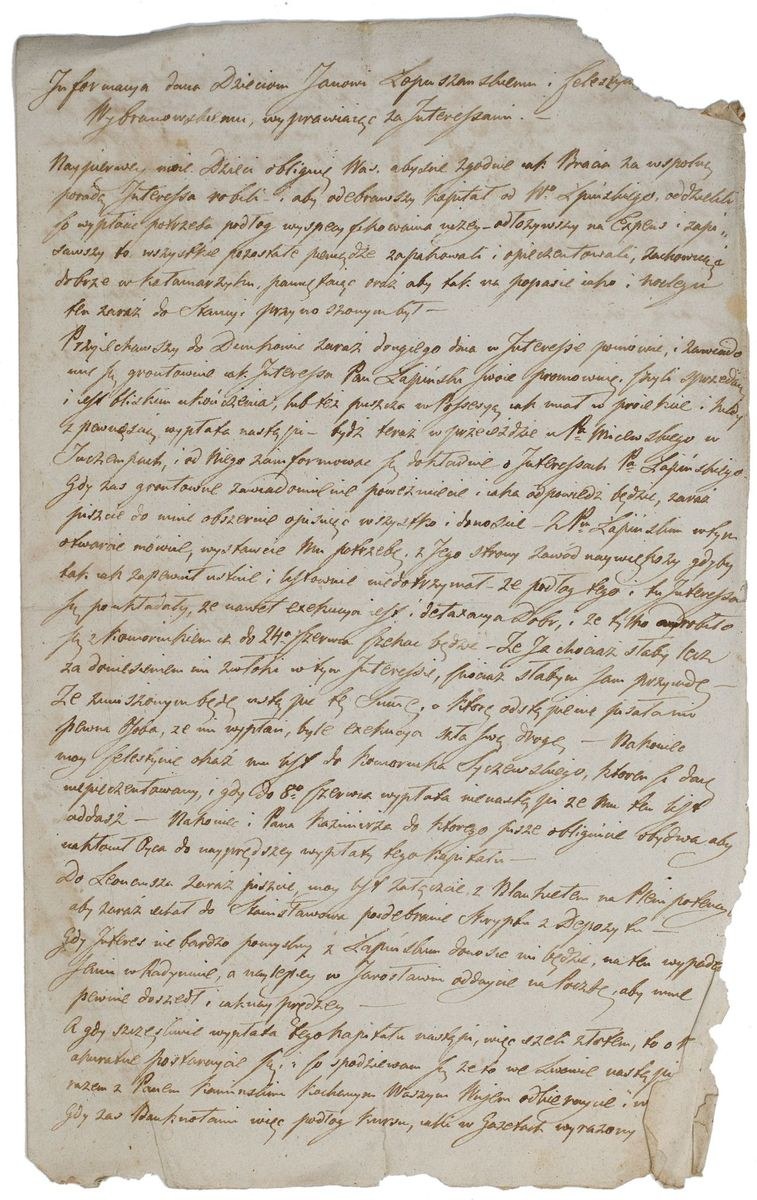 Informacya dana Dzieciom Janowi Łopuszanskiemu i Felesty
Wybranowskiemu, wyprawiaiąc za Interessami. —
Nayprzerwey moie Dzieci obliguię Was, abyście zgodnie iak Bracia za wspolną
poradą Interessa robili i aby odebrawszy Kapitał od Łapińskiego, oddzielili
co wypłacić potrzeba podług wyspecyfikowania odłożywszy na Expens i zapi-
sawszy to wszystkie pozostałe pieniądze zapakowali i opieczentowali, zachowuiąc
dobrze w Kałamarzyku, pamiętaiąc oraz aby tak na popasie iako i noclegu
ten zaraz do Stancyi przynoszonym był —
Przyiechawszy do zaraz drugiego dnia w Interessie pomówcie, i zawiado
mcie się gruntownie iak Interessa Pan Łapiński swoie promowuie, czyli sprzedaie
i iest bliskim ukończenia, lub też puszcza w Possessyą iak miał w proiekcie i kiedy
z pewnością wypłata nastąpi — bądź teraz w przeieździe u Pa Milewskiego w
i od Niego zainformować się dokładnie o Interessach Pa Łapińskiego.
Gdy zas gruntowne zawiadomienie poweźmiecie i iaka odpowiedź będzie, zaraz
piszcie do mnie obszernie opisuiąc wszystko i donoście — Z Pm Łapińskim w tym
otwarcie mówcie, wystawcie Mu potrzebę, z Jego strony zawód naywiększy gdyby
tak iak zapewnił ustnie i listownie niedotrzymał — że podług tego i tu Interessa
się poukładały, że nawet exekucya iest i detaxacya Dobr, i że tylko
się z Komornikiem iż do 24o Czerwca czekać będzie — Że Ja chociaż słaby lecz
za doniesieniem mi zwłoki w tym Interessie, chociaż słabym sam przyiadę —
Że zmuszonym będę ustąpić tę Summę, o ktorey odstąpienie pisała mi
pewna Osoba, że mi wypłaci, byle exekucya szła swą drogą — Nakoniec
moy Felestynie okaż mu list do Komornika Tyczewskiego, ktoren Ci daię
niepieczentowany, i gdy do 8o Czerwca wypłata nienastąpi że Mu ten list
oddasz — Nakoniec i Pana Kazimierza do ktorego pisze obligujcie obydwa aby
nakłonił Oyca do nayprędszey wypłaty tego Kapitału —
Do Leonensza zaraz piszcie, moy list załączcie z Blankietem na Plenipotencyą
aby zaraz iechał do Stanisławowa po odebranie Skryptu z Depozytu —
Gdy Interes nie bardzo pomyslny z Łapińskim donosić mi będzie, na ten wypadek
Sami w Radymnie, a naylepiey w Jarosławiu oddaycie na Pocztę, aby mnie
pewnie doszedł i iaknayprędzey —
A gdy szczęśliwie wypłata tego Kapitału nastąpi, więc ieżeli złotem, to o
akuratne postaraycie się, i co spodziewam się że to we Lwowie nastąpi
razem z Panem Kaminskim Kochanym Waszym Wuiem odbieraycie i w
Gdy zas Banknotami więc podług Kursu, iaki w Gazetach wyrażony